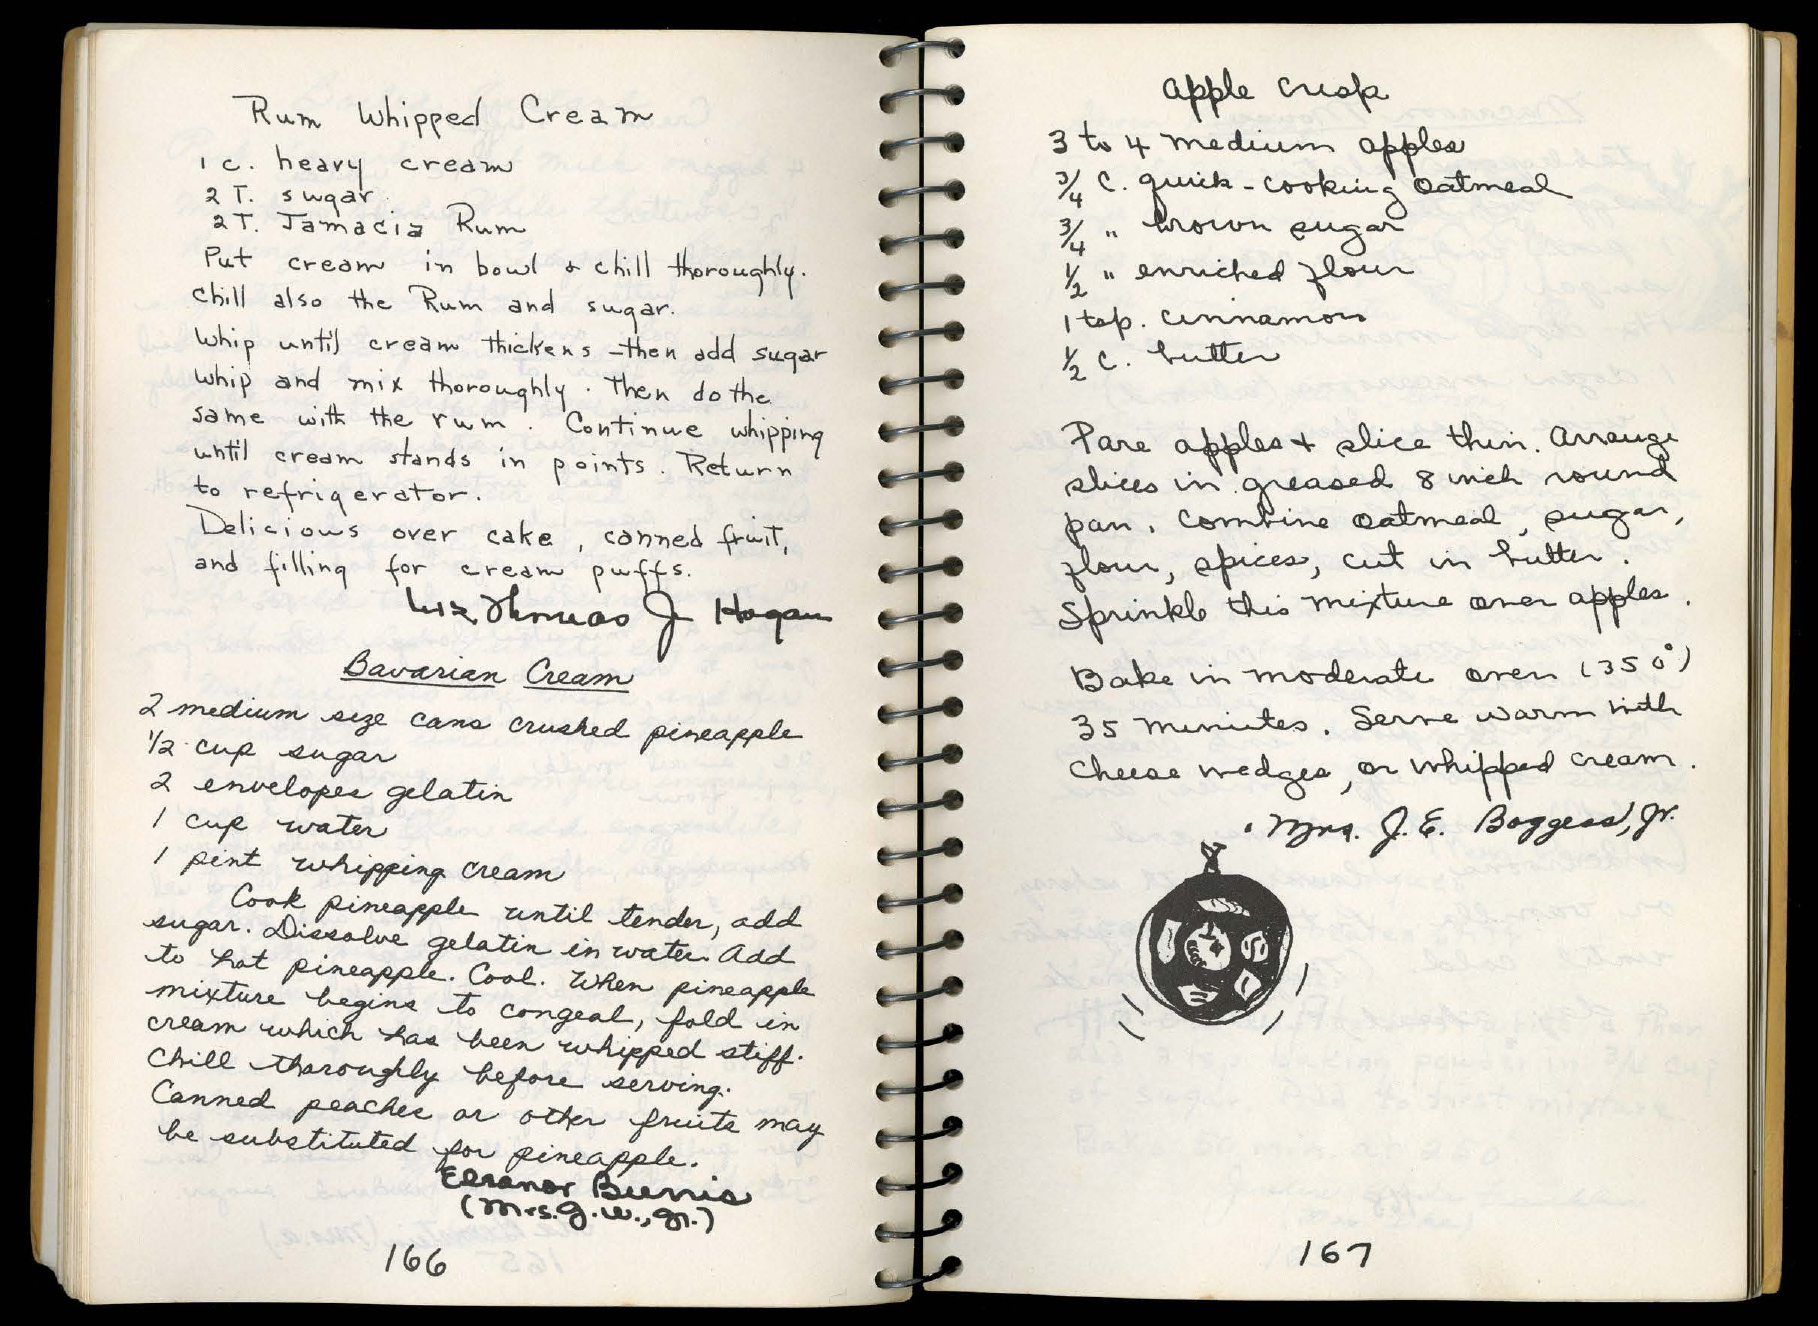 Rum Whipped Cream
1 c. heavy cream
2 T. sugar
2 T. Jamacia Rum
Put cream in bowl & chill thoroughly.
Chill also the Rum and sugar.
Whip until cream thickens - then add sugar
whip and mix thoroughly. Then do the
same with the rum. Continue whipping
until cream stands in points. Return
to refrigerator.
Delicious over cake, canned fruit,
and filling for cream puffs.
Thomas J Hogan
Bavarian Cream
2 medium size cans crushed pineapple
1/2 cup sugar
2 envelopes gelatin
1 cup water
1 pint whipping cream
Cook pineapple until tender, add
sugar. Dissolve gelatin in water. Add
to hot pineapple. Cool. When pineapple
mixture begins to congeal, fold in
cream which has been whipped stiff.
Chill thoroughly before serving.
Canned peaches or other fruits may
be substituted for pineapple.
Eleanor
(Mrs. G. W., Jr.)
166
apple crisp
3 to 4 medium apples
3/4 C. quick-cooking oatmeal
3/4 " brown sugar
1/2 " enriched flour
1 tsp. cinnamon
1/2 C. butter
Pare apples + slice thin. Arrange
slices in greased 8 inch round
pan. Combine oatmeal, sugar,
flour, spices, cut in butter.
Sprinkle this mixture over apples.
Bake in moderate oven (350°)
35 minutes. Serve warm with
cheese wedges, or whipped cream.
Mrs. J. E. Boggess, Jr.
167